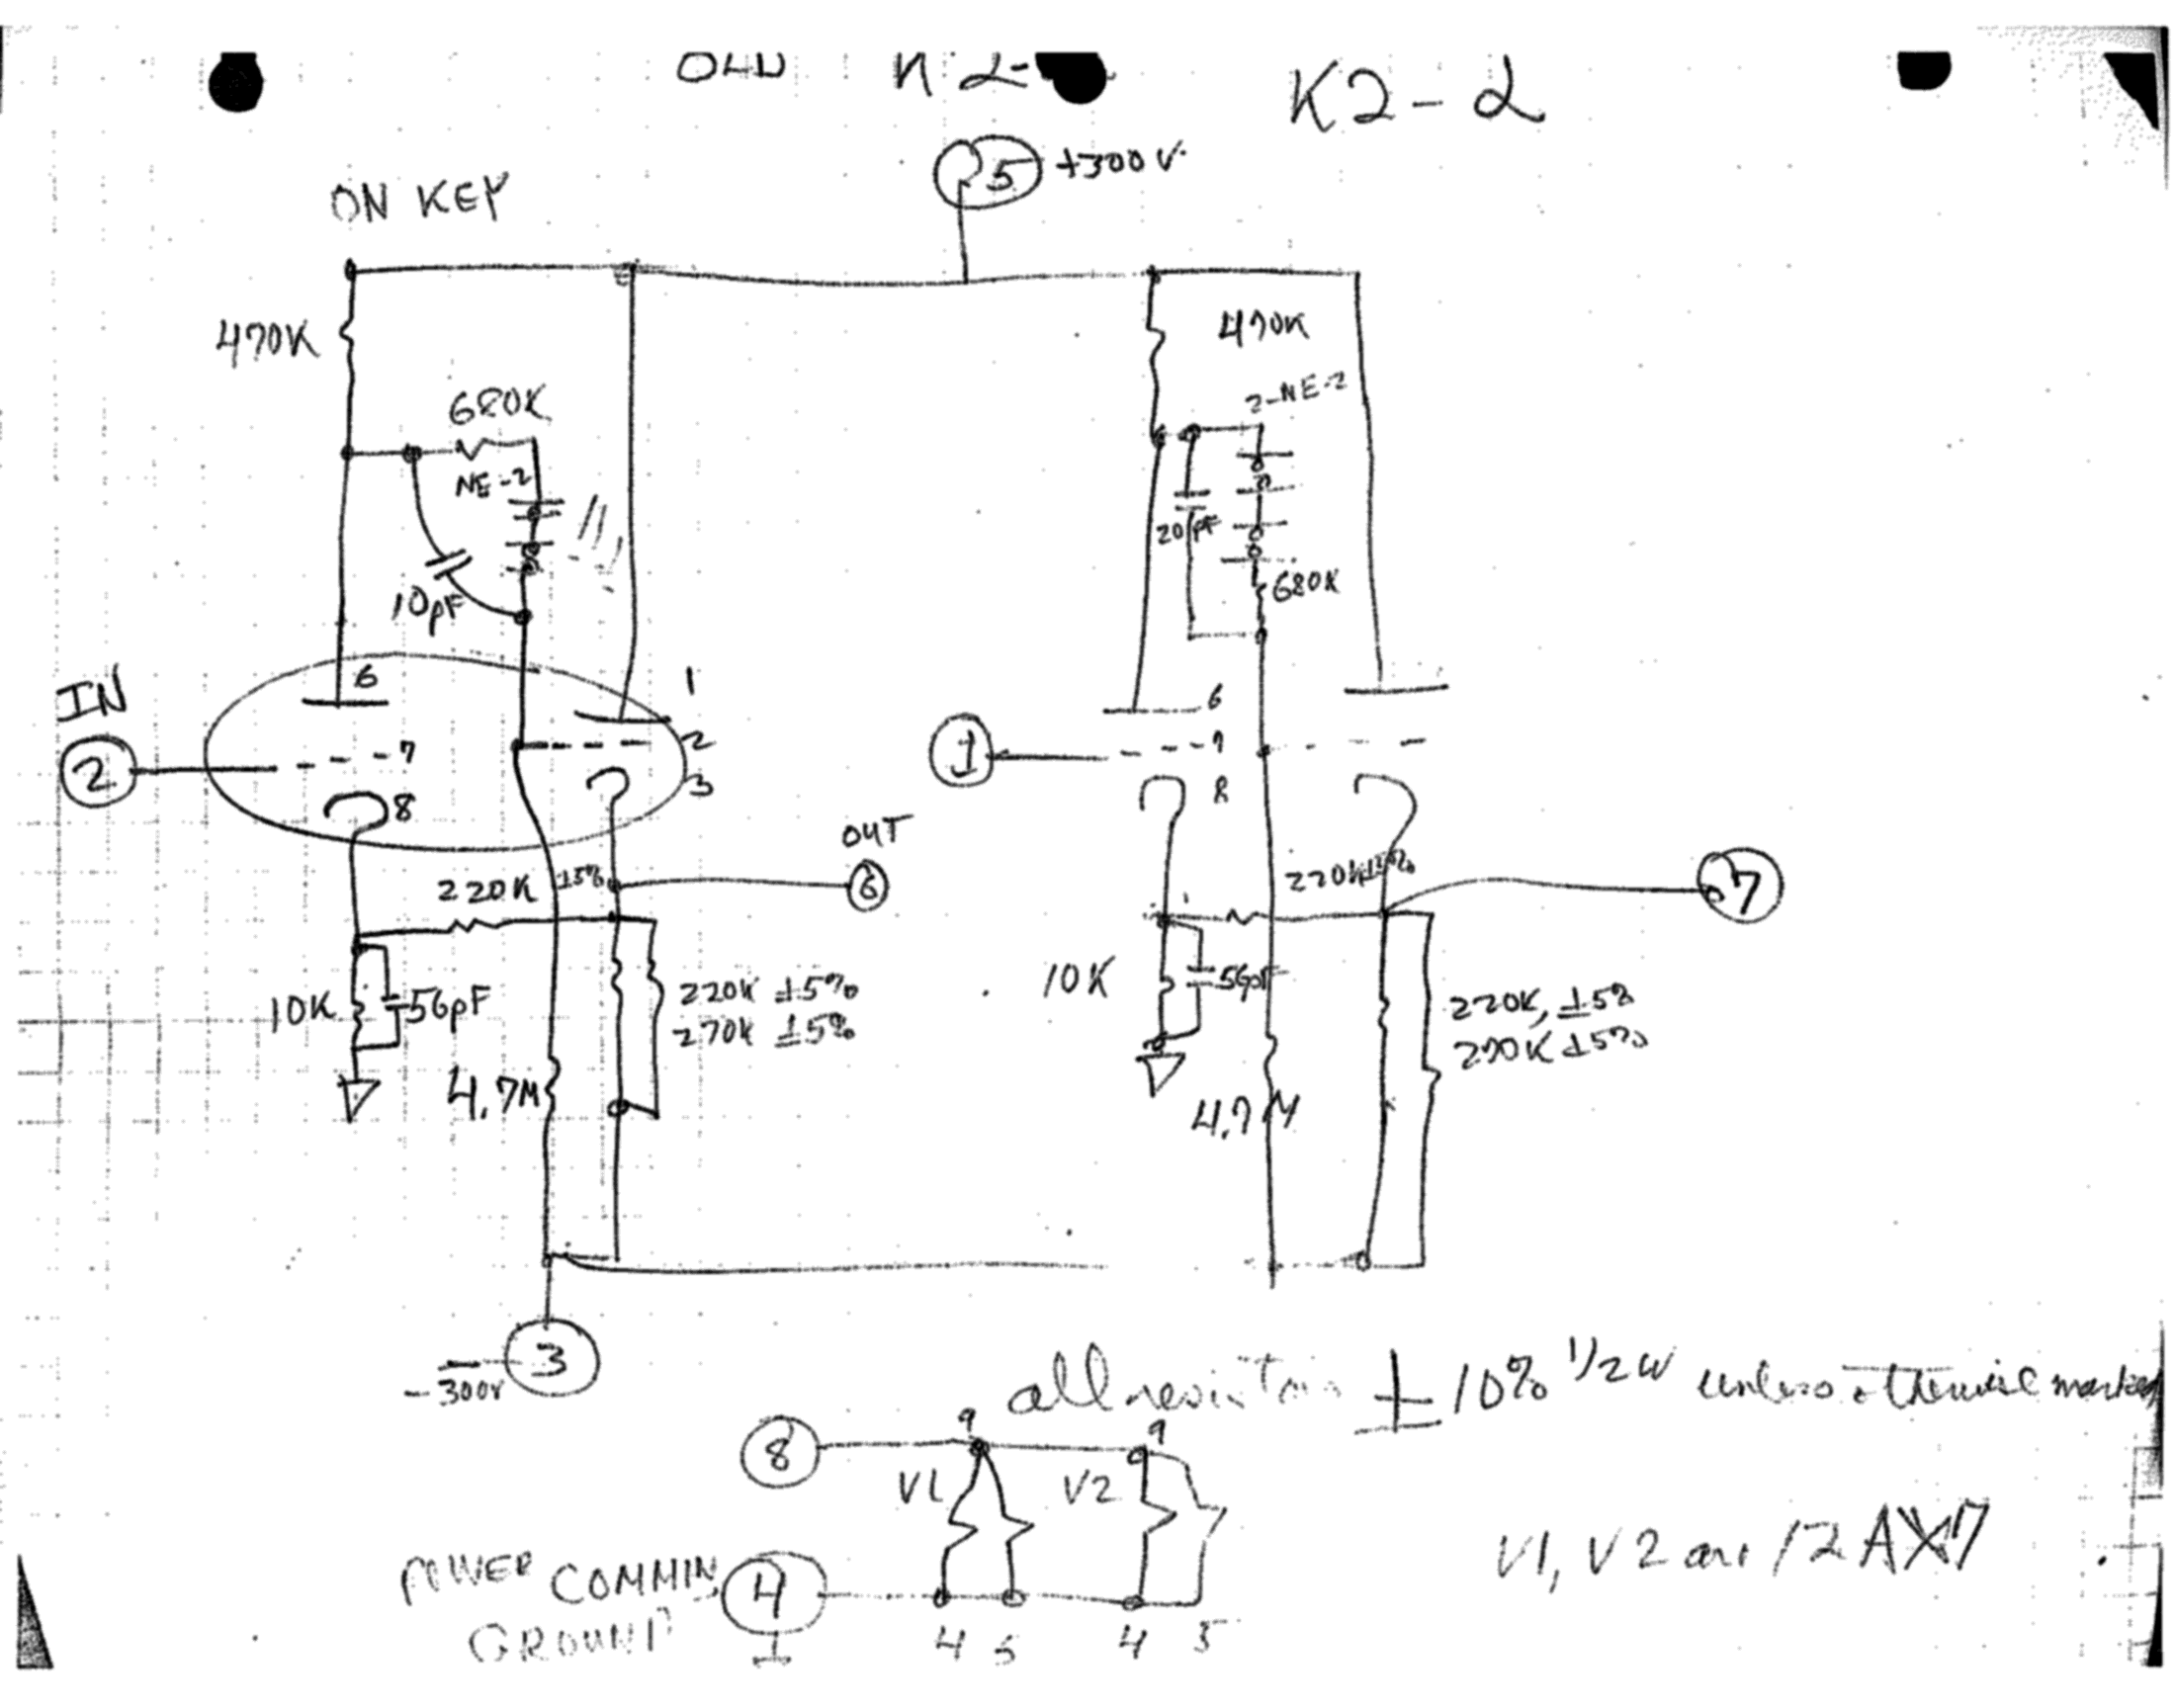 OLD K2-
K2-2
5 +300V.
ON KEY
470K
470K
680K
2-NE-2
NE-2
20pF
10pF
680K
IN
6
1
6
2
7
2
1
7
8
3
8
OUT
220K ±5%
6
220K ±5%
7
10K
56pF
220K ±5%
270K ±5%
10K
56pF
220K, ±5%
270K ±5%
4.7M
4.7M
3
-300V
all resistors ±10% 1/2W unless otherwise marked
8
9
9
V1
V2
V1, V2 are 12AX7
POWER COMMIN
GROUND
4
4 5
4 5